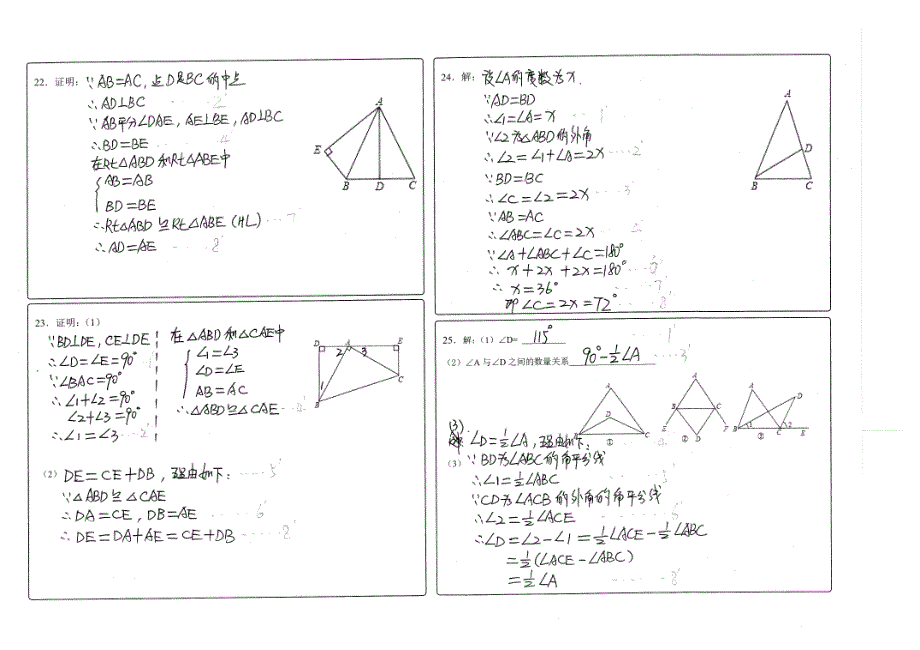 22. 证明: ∵AB=AC, 点D是BC的中点
∴AD⊥BC ······2'
∵AB平分∠DAE, AE⊥BE, AD⊥BC
∴BD=BE ······4'
在Rt△ABD和Rt△ABE中
AB=AB
BD=BE
∴Rt△ABD≌Rt△ABE (HL) ···7'
∴AD=AE ······8'
A
E
B D C
23. 证明: (1)
∵BD⊥DE, CE⊥DE
∴∠D=∠E=90°
∵∠BAC=90°
∴∠1+∠2=90°
∠2+∠3=90°
∴∠1=∠3 ···2'
在△ABD和△CAE中
∠1=∠3
∠D=∠E
AB=AC
∴△ABD≌△CAE ···4'
D A E
2 3
1
C
B
(2) DE=CE+DB, 理由如下: ······5'
∵△ABD≌△CAE
∴DA=CE, DB=AE ······6'
∴DE=DA+AE=CE+DB ······8'
24. 解: 设∠A的度数为x.
∵AD=BD
∴∠1=∠A=x ······1'
∵∠2为△ABD的外角
∴∠2=∠1+∠A=2x ······2'
∵BD=BC
∴∠C=∠2=2x ······3'
∵AB=AC
∴∠ABC=∠C=2x
∵∠A+∠ABC+∠C=180°
∴x+2x+2x=180° ······6'
∴x=36° ······7'
即∠C=2x=72° ······8'
A
D
B C
25. 解: (1) ∠D= 115° ······1'
(2) ∠A 与∠D 之间的数量关系 90°-½∠A ······3'
A
D
B C
①
A
B C
E D F
②
A
D
B 1 C 2 E
③
(3)
∠D=½∠A, 理由如下:
(3) ∵BD为∠ABC的角平分线
∴∠1=½∠ABC ······5'
∵CD为∠ACB的外角的角平分线
∴∠2=½∠ACE ······6'
∴∠D=∠2-∠1=½∠ACE-½∠ABC
=½(∠ACE-∠ABC)
=½∠A ······8'